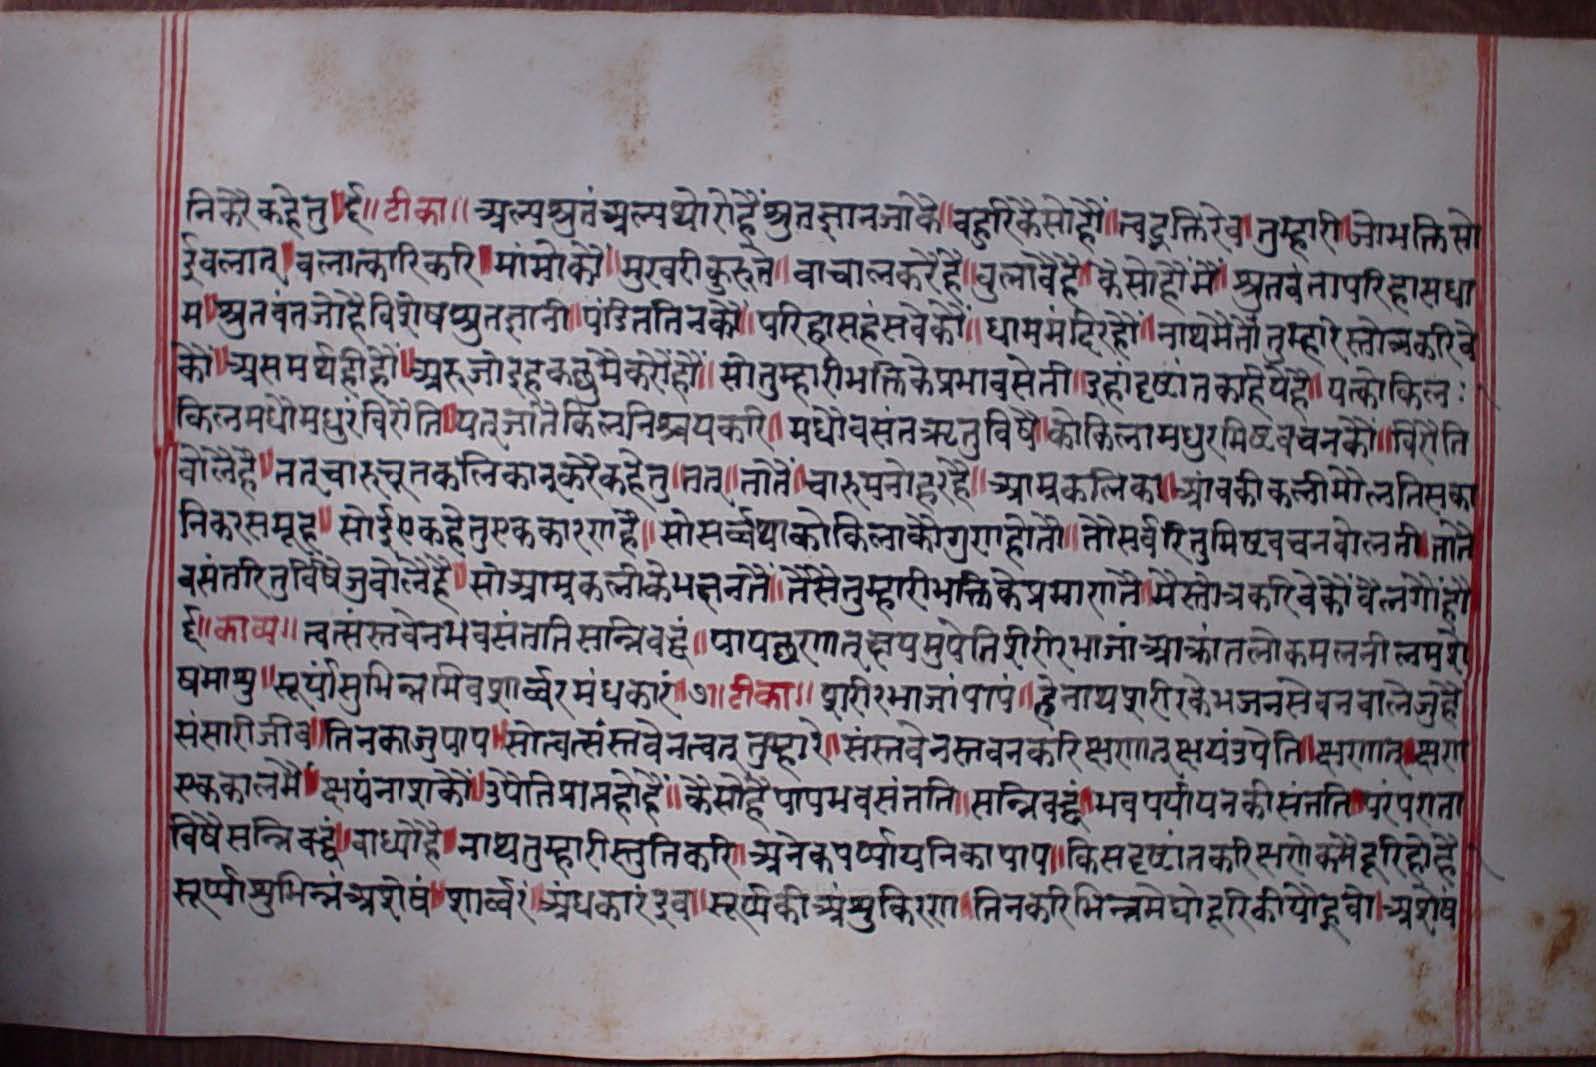 निकरैकहेतु ६॥ टीका॥ अल्पश्रुतंअल्पथोरोहैंश्रुतज्ञानजाकै॥ बहुरिकैसोहौं॥ त्वद्भक्तिरेव॥ तुम्हारी॥ जोभक्तिसो
ईवलात्॥ वलात्कारिकरि॥ मांमोकौं॥ मुखरीकुरुते॥ वाचालकरैहै॥ वुलावैहै॥ कैसोहौंमैं॥ श्रुतवंतांपरिहासधा
म॥ श्रुतवंतजोहैविशेषश्रुतज्ञानी॥ पंडिततिनकौं॥ परिंहासहंसवेकौं॥ धाममंदिरहौं॥ नाथमैतौतुम्हारेस्तोत्रकरिवे
कौं॥ असमर्थहीहौं॥ अरुजोइहकछुमैकरोंहौं॥ सोतुम्हारीभक्तिकेप्रभावसेती॥ इहांदृष्टांतकहियेहै॥ यत्कोकिलः
किलमधौमधुरंविरौति॥ यत्जातैकिलनिश्चयकरि॥ मधौवसंतऋतुविषै॥ कोकिलामधुरमिष्टवचनकौं॥ विरौति
वोलैहै॥ तत्चारुचूतकलिकानिकरैकहेतु॥ तत्॥ तातैं॥ चारुमनोहरहै॥ आम्रकलिका॥ आंवकीकलीमौलतिसका
निकरसमूह॥ सोईएकहेतुएककारणहै॥ सोसर्व्वथाकोकिलाकौगुणहोतौ॥ तौसर्वरितुमिष्टवचनवोलती॥ तातै
वसंतरितुविषैजुवोलैहै॥ सोआम्रकलीकेभक्षनतैं॥ तैसेतुम्हारीभक्तिकेप्रमाणतै॥ मैस्तोत्रकरिवेकौं
६॥ काव्य॥ त्वत्संस्तवेनभवसंततिसन्निवद्धं॥ पापंक्षणात्क्षयमुपैतिशरीरभाजां॥ आक्रांतलोकमलनीलमशे
षमाशु॥ सूर्यांसुभिन्नमिवशार्व्वरमंधकारं॥ ७॥ टीका॥ शरीरभाजांपापं॥ हेनाथशरीरकेभजनसेवनवालेजुहै
संसारीजीव॥ तिनकाजुपाप॥ सोत्वत्संस्तवेनत्वत्तुम्हारे॥ संस्तवेनस्तवनकरिक्षणात्क्षयंउपैति॥ क्षणात्॥ क्षण
एककालमै॥ क्षयंनाशकौं॥ उपैतिप्राप्तहोहै॥ कैसोहैपापभवसंतति॥ सन्निवद्धं॥ भवपर्यायनकीसंतति॥ परंपराता
विषैसन्निवद्धं॥ वाध्योहै॥ नाथतुम्हारीस्तुतिकरि॥ अनेकपर्य्यायनिकापाप॥ किसदृष्टांतकरिक्षणेकमैदूरिहोहै
सूर्य्यांशुभिन्नंअशेषं॥ शार्व्वरं॥ अंधकारंइव॥ सूर्य्यकीअंशुकिरण॥ तिनकरिभिन्नमेघोदूरिकीयौहूवो॥ अशेषं